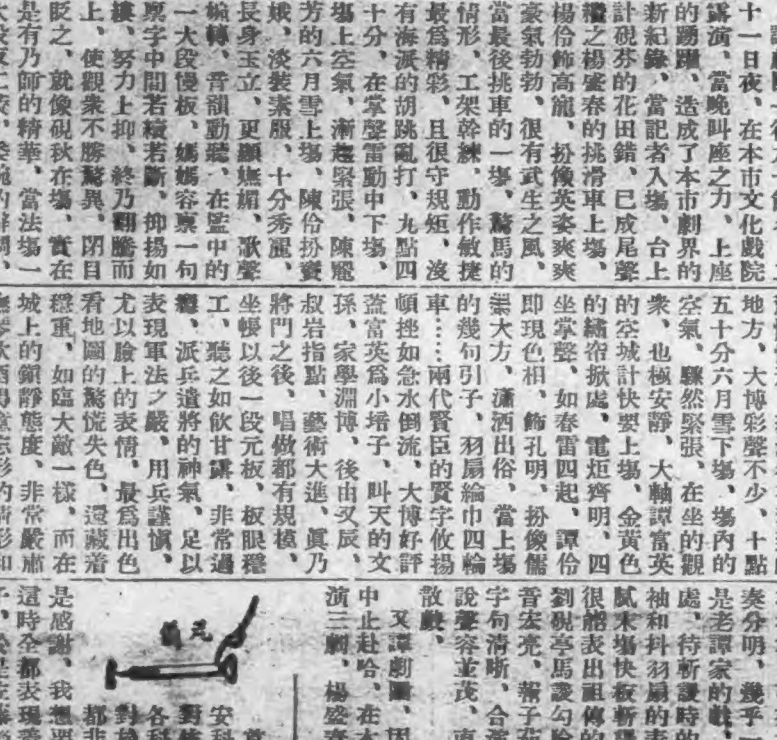 十一日夜、在本市文化戲院
露演、當晚叫座之力、上座
的踴躍、造成了本市劇界的
新紀錄、當記者入塲、台上
計硯芬的花田錯、已成尾聲
繼之楊盛春的挑滑車上塲、
楊伶飾高寵、扮像英姿爽爽
豪氣勃勃、很有武生之風、
當最後挑車的一塲、驚馬的
情形、工架幹練、動作敏捷
最爲精彩、且很守規矩、沒
有海派的胡跳亂打、九點四
十分、在掌聲雷動中下塲、
塲上空氣、漸趨緊張、陳麗
芳的六月雪上塲、陳伶扮竇
娥、淡裝素服、十分秀麗、
長身玉立、更顯嫵媚、歌聲
婉轉、音韻動聽、在監中的
一大段慢板、媽媽容禀一句
禀字中間若續若斷、抑揚如
縷、努力上抑、終乃翻騰而
上、使觀衆不勝驚異、閉目
眨之、就像硯秋在塲、實在
是有乃師的精華、當法塲一
地方、大博彩聲不少、十點
五十分六月雪下塲、塲內的
空氣、驟然緊張、在坐的觀
衆、也極安靜、大軸譚富英
的空城計快要上塲、金黃色
的繡帘掀處、電炬齊明、四
坐掌聲、如春雷四起、譚伶
即現色相、飾孔明、扮像儒
雅大方、瀟洒出俗、當上塲
的幾句引子、羽扇綸巾四輪
車……兩代賢臣的賢字攸揚
頓挫如急水倒流、大博好評
蓋富英爲小培子、叫天的文
孫、家學淵博、後由叉辰、
叔岩指點、藝術大進、眞乃
將門之後、唱做都有規模、
坐帳以後一段元板、板眼穩
工、聽之如飲甘露、非常過
癮、派兵遣將的神氣、足以
表現軍法之嚴、用兵謹愼、
尤以臉上的表情、最爲出色
看地圖的驚慌失色、還藏着
穩重、如臨大敵一樣、而在
城上的鎭靜態度、非常嚴肅
奏分明、幾乎一
是老譚家的戲、
處、待斬謖時的
袖和抖羽扇的表
賦末塲快板斬謖
很能表出祖傳的
劉硯亭馬謖勾臉
音宏亮、報子茹
字句清晰、合演
說聲容並茂、直
散戲、
又譚劇團、因
中止赴哈、在本
演三劇、楊盛春
安科
對於
各科
對於
都非
是感謝、我想要
這時全都表現着